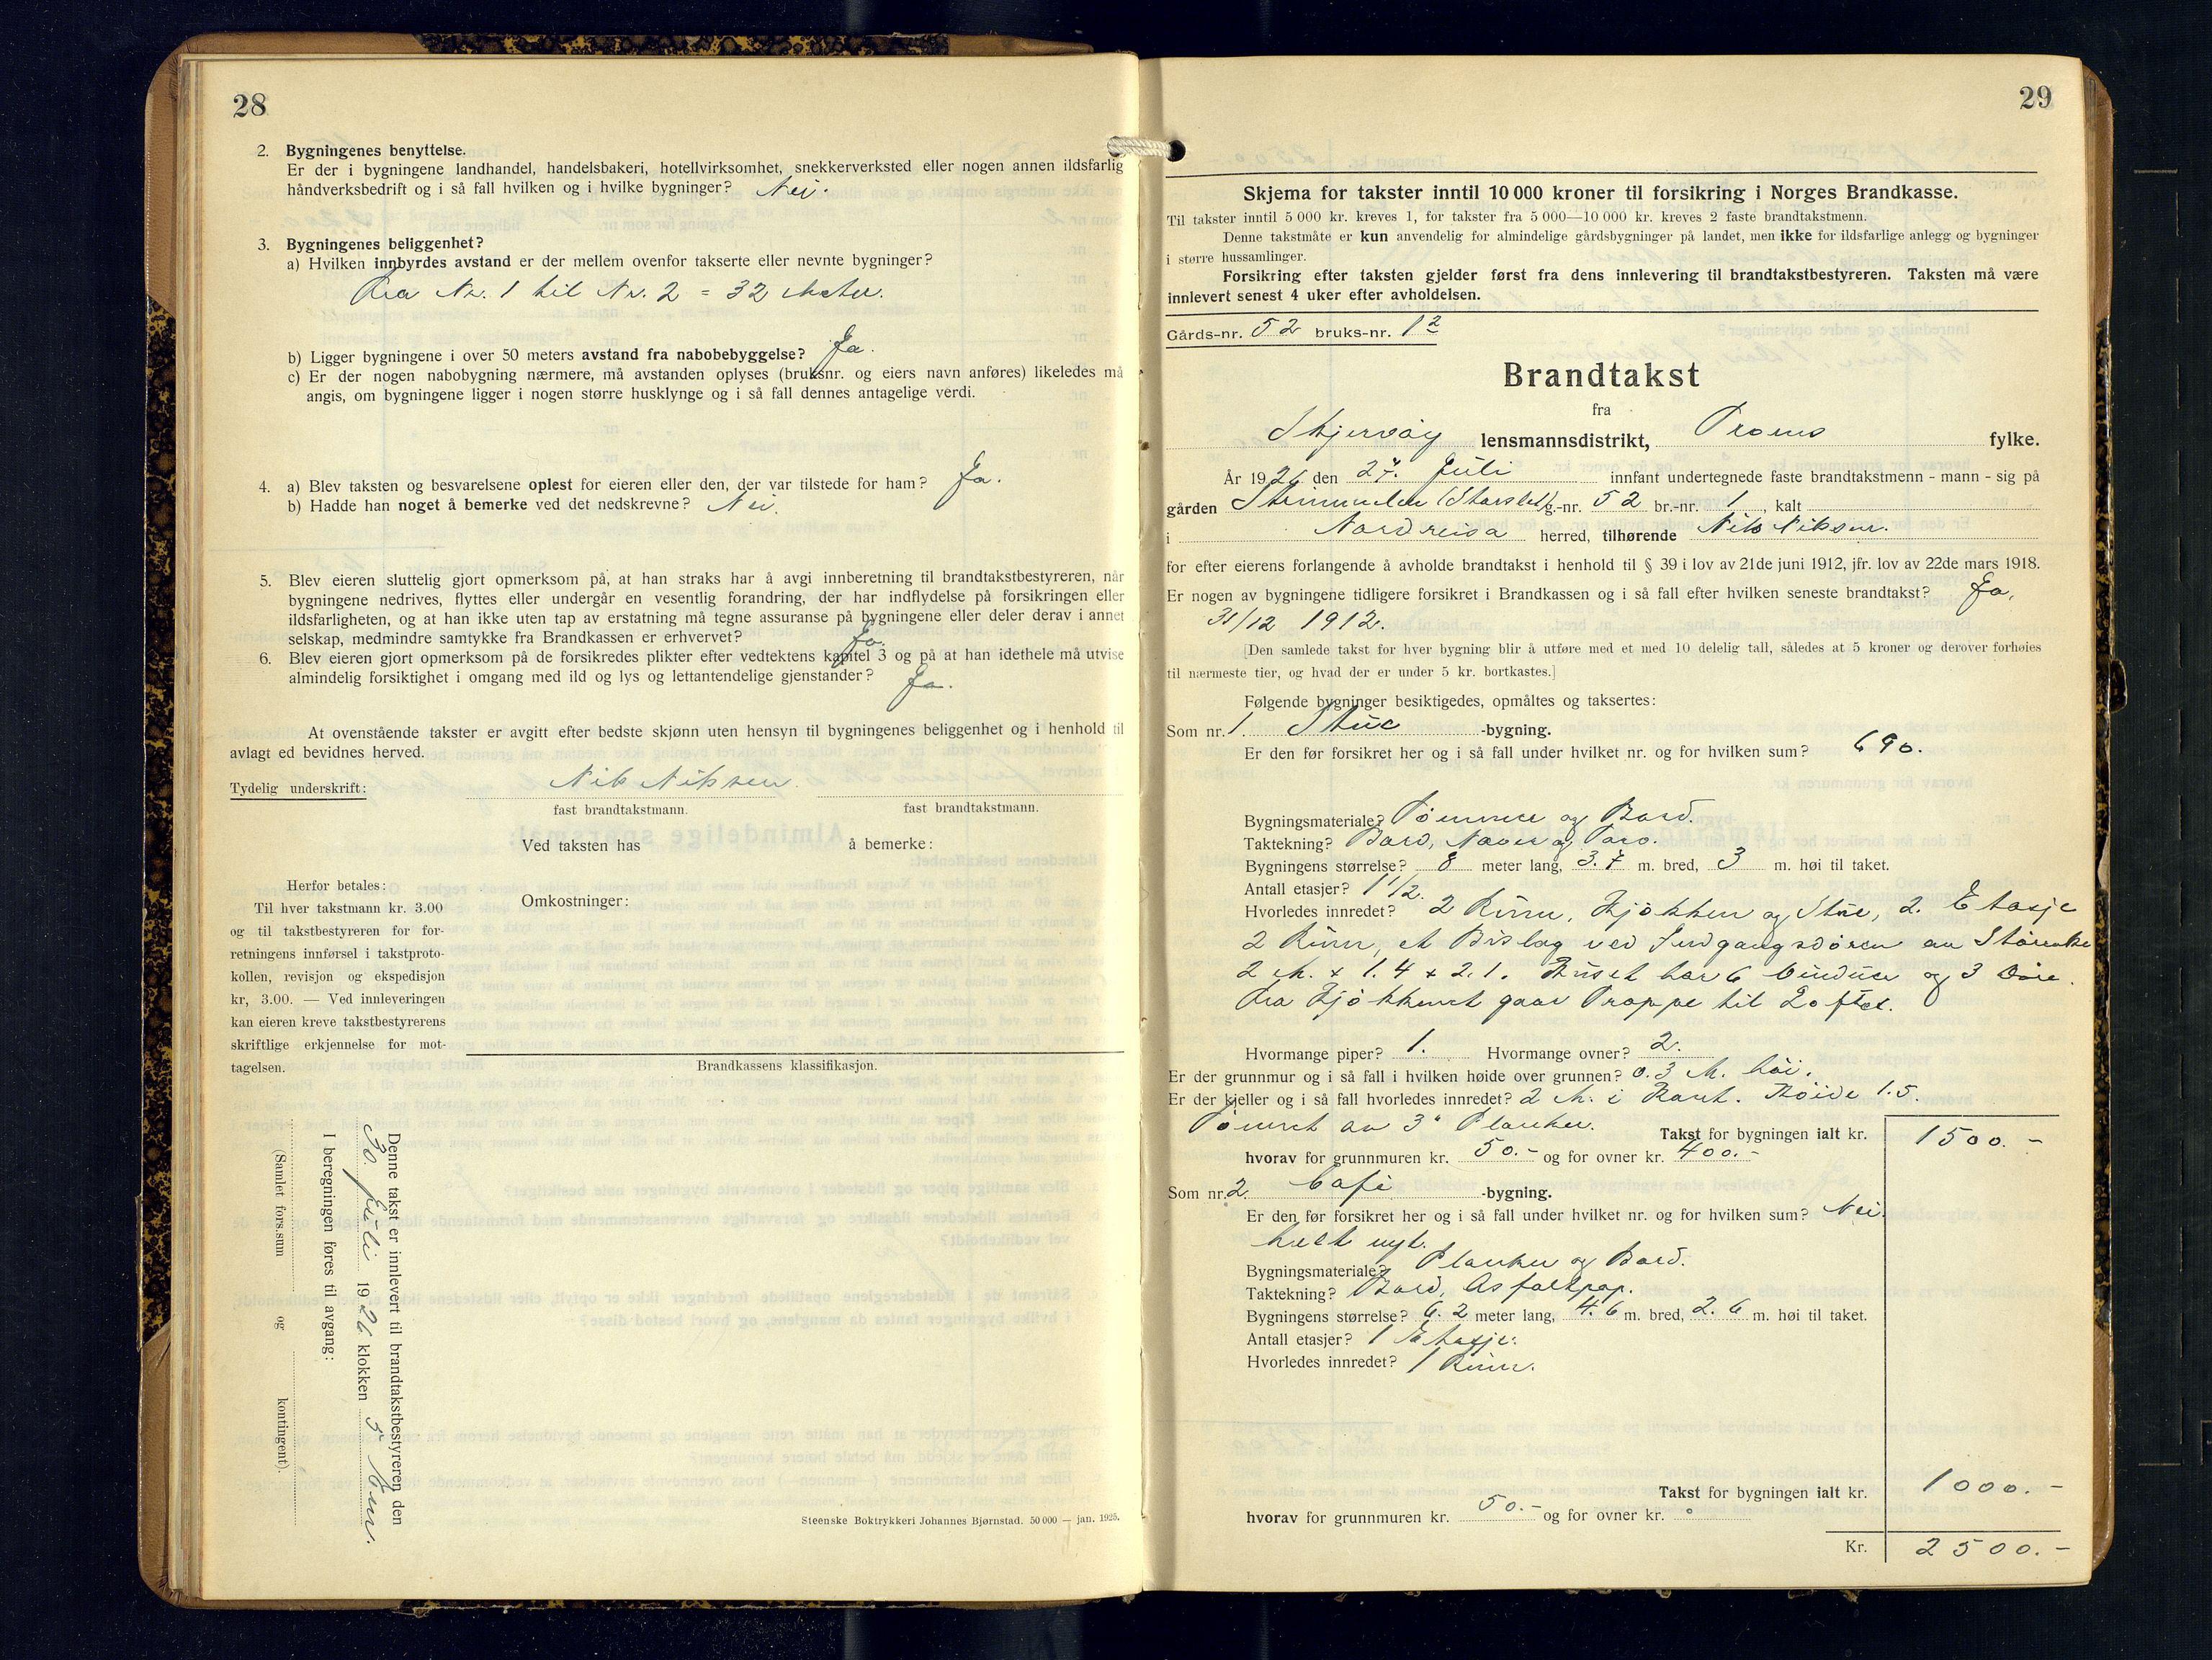 28
2. Bygningenes benyttelse.
Er der i bygningene landhandel, handelsbakeri, hotellvirksomhet, snekkerverksted eller nogen annen ildsfarlig
håndverksbedrift og i så fall hvilken og i hvilke bygninger? Nei.
3. Bygningenes beliggenhet?
a) Hvilken innbyrdes avstand er der mellem ovenfor takserte eller nevnte bygninger?
Fra Nr. 1 til Nr. 2 = 32 Meter.
b) Ligger bygningene i over 50 meters avstand fra nabobebyggelse? Ja.
c) Er der nogen nabobygning nærmere, må avstanden oplyses (bruksnr. og eiers navn anføres) likeledes må
angis, om bygningene ligger i nogen større husklynge og i så fall dennes antagelige verdi.
4. a) Blev taksten og besvarelsene oplest for eieren eller den, der var tilstede for ham? Ja.
b) Hadde han noget å bemerke ved det nedskrevne? Nei.
5. Blev eieren sluttelig gjort opmerksom på, at han straks har å avgi innberetning til brandtakstbestyreren, når
bygningene nedrives, flyttes eller undergår en vesentlig forandring, der har indflydelse på forsikringen eller
ildsfarligheten, og at han ikke uten tap av erstatning må tegne assuranse på bygningene eller deler derav i annet
selskap, medmindre samtykke fra Brandkassen er erhvervet? Ja.
6. Blev eieren gjort opmerksom på de forsikredes plikter efter vedtektens kapitel 3 og på at han idethele må utvise
almindelig forsiktighet i omgang med ild og lys og lettantendelige gjenstander? Ja.
At ovenstående takster er avgitt efter bedste skjønn uten hensyn til bygningenes beliggenhet og i henhold til
avlagt ed bevidnes herved.
Tydelig underskrift: Nils Nilssen.
fast brandtakstmann. fast brandtakstmann.
Ved taksten has å bemerke:
Herfor betales:
Til hver takstmann kr. 3.00
og til takstbestyreren for for-
retningens innførsel i takstproto-
kollen, revisjon og ekspedisjon
kr, 3.00. — Ved innleveringen
kan eieren kreve takstbestyrerens
skriftlige erkjennelse for mot-
tagelsen.
Omkostninger:
Brandkassens klassifikasjon.
Denne takst er innlevert til brandtakstbestyreren den
30 juli 1926 klokken 5 Em.
I beregningen føres til avgang:
(Samlet fors.sum og kontingent).
Steenske Boktrykkeri Johannes Bjørnstad. 50 000 — jan. 1925.
29
Skjema for takster inntil 10 000 kroner til forsikring i Norges Brandkasse.
Til takster inntil 5 000 kr. kreves 1, for takster fra 5 000—10 000 kr. kreves 2 faste brandtakstmenn.
Denne takstmåte er kun anvendelig for almindelige gårdsbygninger på landet, men ikke for ildsfarlige anlegg og bygninger
i større hussamlinger.
Forsikring efter taksten gjelder først fra dens innlevering til brandtakstbestyreren. Taksten må være
innlevert senest 4 uker efter avholdelsen.
Gårds-nr. 52 bruks-nr. 1 2
Brandtakst
fra
Skjervøy lensmannsdistrikt, Troms fylke.
År 1926 den 27. Juli innfant undertegnede faste brandtakstmenn - mann - sig på
gården (Storslet) g.-nr. 52 br.-nr. 1, kalt
i Nordreisa herred, tilhørende Nils Nilsen.
for efter eierens forlangende å avholde brandtakst i henhold til § 39 i lov av 21de juni 1912, jfr. lov av 22de mars 1918.
Er nogen av bygningene tidligere forsikret i Brandkassen og i så fall efter hvilken seneste brandtakst? Ja,
31/12 1912.
[Den samlede takst for hver bygning blir å utføre med et med 10 delelig tall, således at 5 kroner og derover forhøies
til nærmeste tier, og hvad der er under 5 kr. bortkastes.]
Følgende bygninger besiktigedes, opmåltes og taksertes:
Som nr. 1. Stue -bygning.
Er den før forsikret her og i så fall under hvilket nr. og for hvilken sum? 690.
Bygningsmateriale? Tømmer og Bord.
Taktekning? Bord, Never og Torv.
Bygningens størrelse? 8 meter lang, 3.7 m. bred, 3 m. høi til taket.
Antall etasjer? 1 1/2.
Hvorledes innredet? 2 Rum, Kjøkken og Stue, 2. Etasje
2 Rum, et Bislag ved Indgangsdøren av Størrelse
2 M. x 1.4 x 2.1. Huset har 6 Vinduer og 3 Døre.
Fra Kjøkkenet gaar Trappe til Loftet.
Hvormange piper? 1. Hvormange ovner? 2.
Er der grunnmur og i så fall i hvilken høide over grunnen? 0.3 M. høi.
Er der kjeller og i så fall hvorledes innredet? 2 M. i Kant. Høide 1.5.
Tømret av 3" Planker. Takst for bygningen ialt kr. 1500.-
hvorav for grunnmuren kr. 50.- og for ovner kr. 400.-
Som nr. 2. Cafe -bygning.
Er den før forsikret her og i så fall under hvilket nr. og for hvilken sum? Nei.
helt nyt.
Bygningsmateriale? Planker og Bord.
Taktekning? Bord, Asfaltpap.
Bygningens størrelse? 6.2 meter lang, 4.6 m. bred, 2.6 m. høi til taket.
Antall etasjer? 1 Etasje.
Hvorledes innredet? 1 Rum.
Takst for bygningen ialt kr. 1000.-
hvorav for grunnmuren kr. 50.- og for ovner kr. 0
Kr. 2500.-